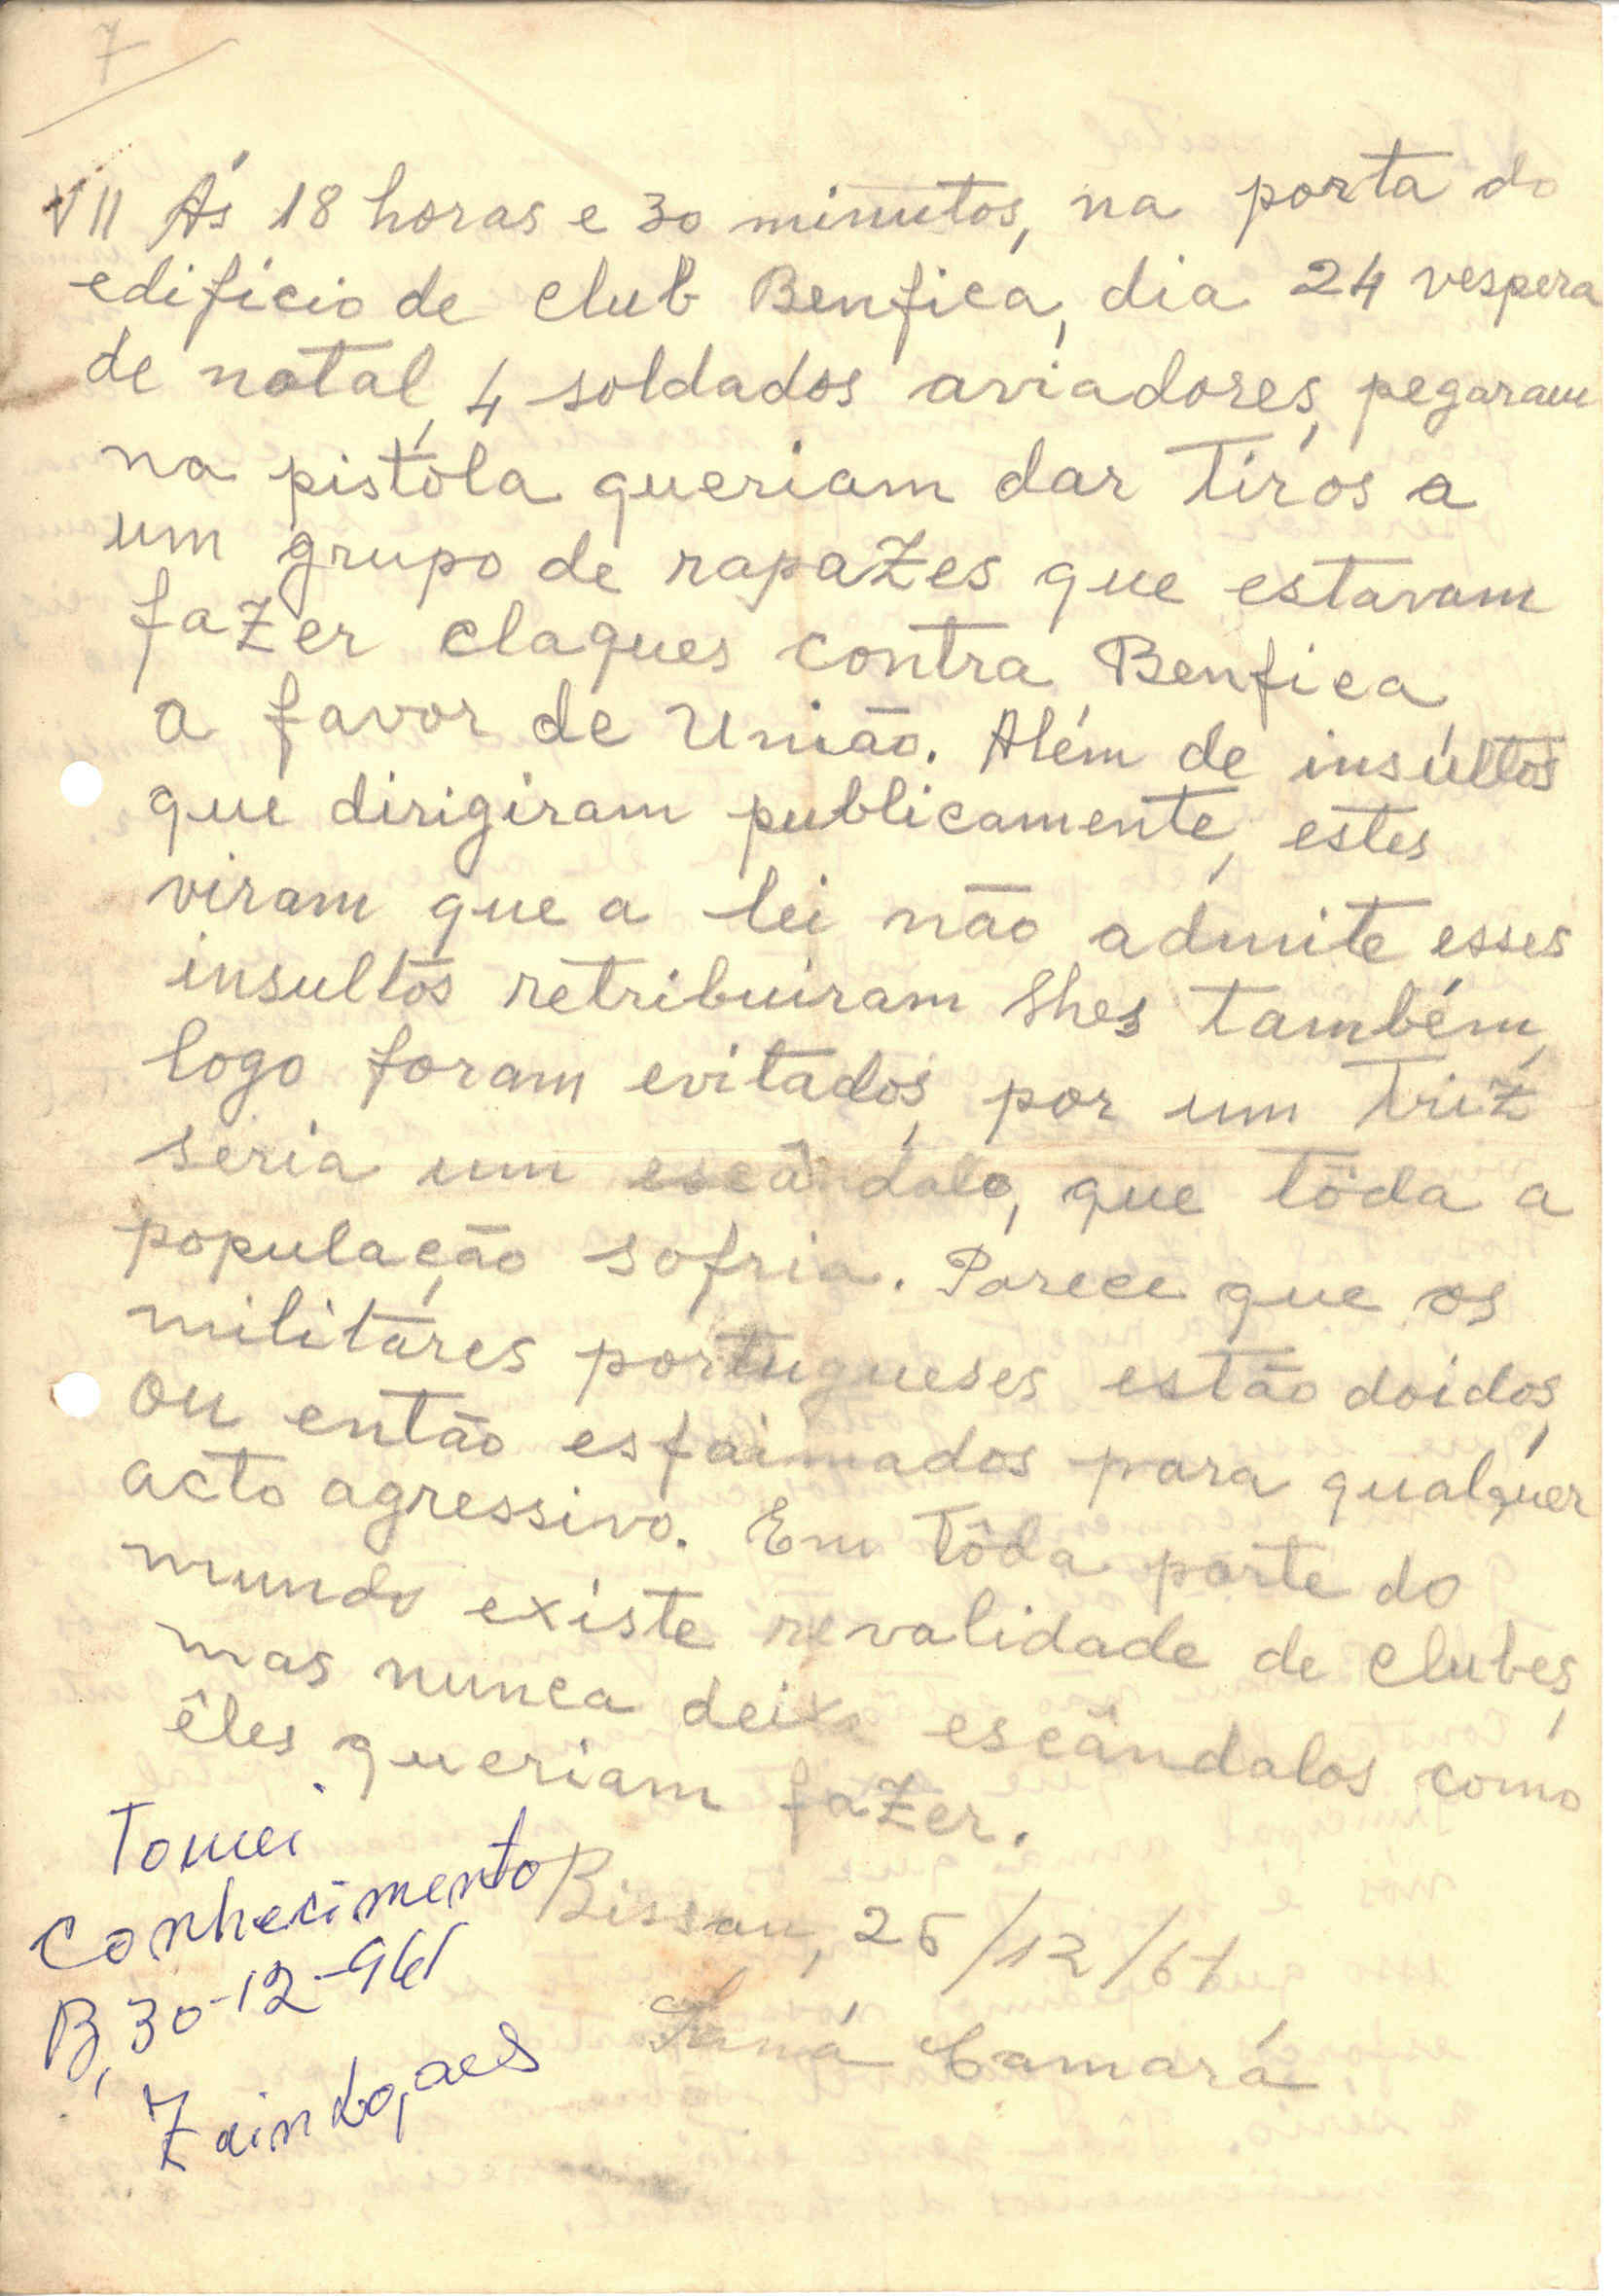 7
VII Ás 18 horas e 30 minutos, na porta do
edifício de club Benfica, dia 24 vespera
de natal, 4 soldados aviadores, pegaram
na pistóla queriam dar tiros a
um grupo de rapazes que estavam
fazer claques contra Benfica,
a favor de União. Além de insúltos
que dirigiram publicamente, estes
viram que a lei não admite esses
insultos retribuiram lhes também,
logo foram evitados, por um triz
seria um escândalo, que tôda a
população sofria. Parece que os
militares portugueses estão doidos,
ou então esfaimados para qualquer
acto agressivo. Em tôda parte do
mundo existe revalidade de clubes,
mas nunca deixa escândalos como
êles queriam fazer.
Tomei
conhecimento
B, 30-12-961
Zain Lopes
Bissau, 26/12/61
Saná Camará